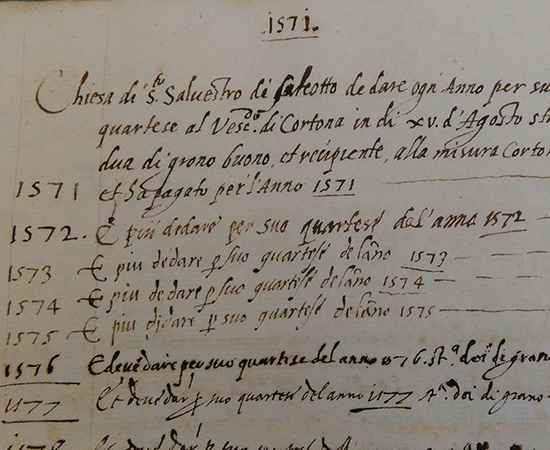 1571.
Chiesa di S.to Salvestro di Galeotto de dare ogni Anno per su
quartese al Vesc.do di Cortona in di xv. d'Agosto st
dua di grano buono, et recipiente, alla misura Corto
1571 et ha pagato per l'Anno 1571
1572. E piu dedare per suo quartese de l'anno 1572
1573 E piu dedare p suo quartese de lãno 1573
1574 E piu dedare p suo quartese de lãno 1574
1575 E piu didare p suo quartese de lãno 1575
1576 E deve dare per suo quartese del anno 1576. st.a doi di gran
1577 Et deve dar p suo quartese del anno 1577 st.a doi di grano
1578